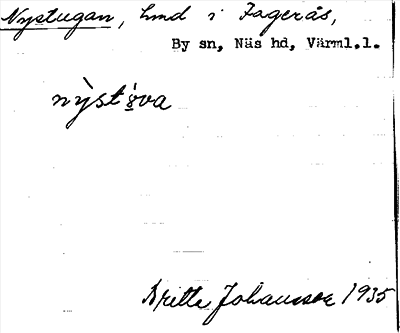 Nystugan, hmd i Fagerås,
By sn, Näs hd, Värml.l.
nỳst´ꞩva
Britta Johansson 1935